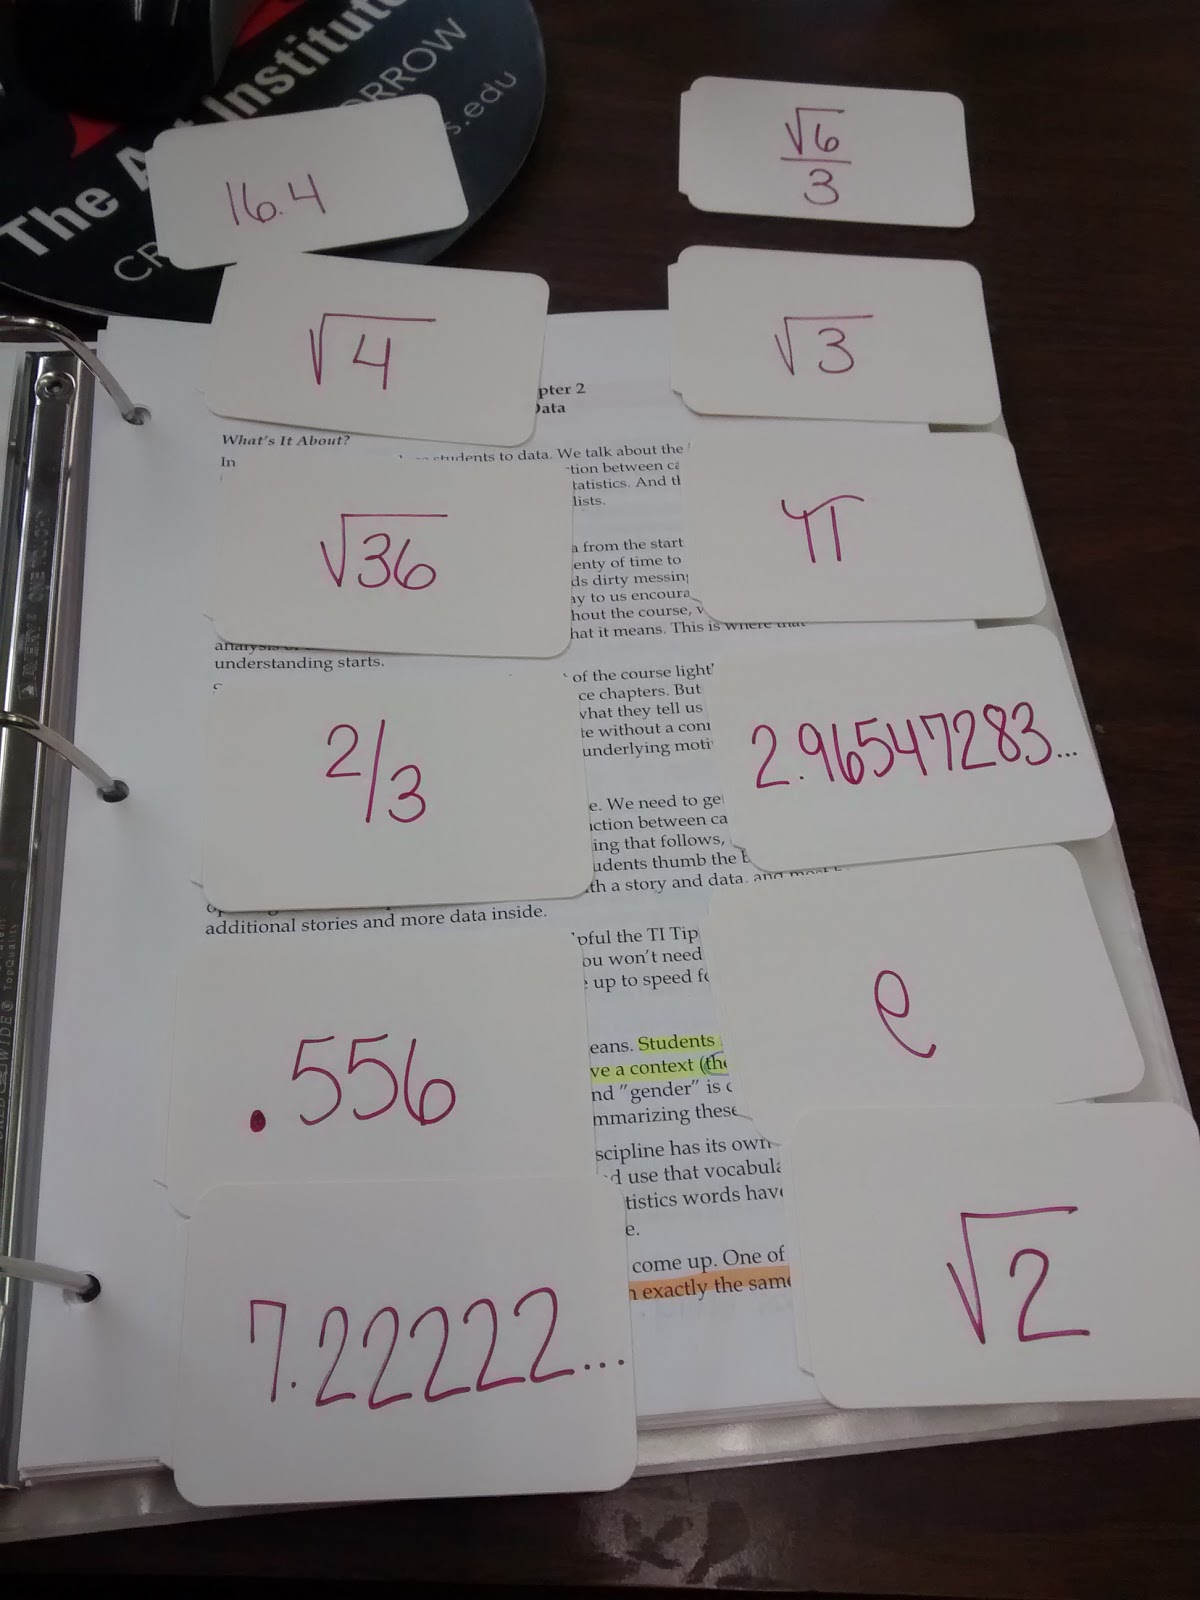 The Art Institut
CR
ORROW
s.edu
16.4
√6
3
√4
√3
pter 2
Data
What's It About?
In
students to data. We talk about the
tion between ca
tatistics. And th
lists.
√36
π
a from the start
enty of time to
ds dirty messin
ay to us encoura
hout the course, v
hat it means. This is where that
understanding starts.
of the course light
ce chapters. But
what they tell us
te without a con
underlying moti
2/3
2.96547283...
e. We need to ge
ction between ca
ing that follows,
udents thumb the b
th a story and data, and most
additional stories and more data inside.
pful the TI Tip
ou won't need
up to speed fo
.556
e
eans. Students
ve a context (the
nd "gender" is c
mmarizing these
scipline has its own
d use that vocabula
tistics words have
e.
come up. One of
n exactly the same
7.22222...
√2
AVERY ONE TOUCH
TopQuality